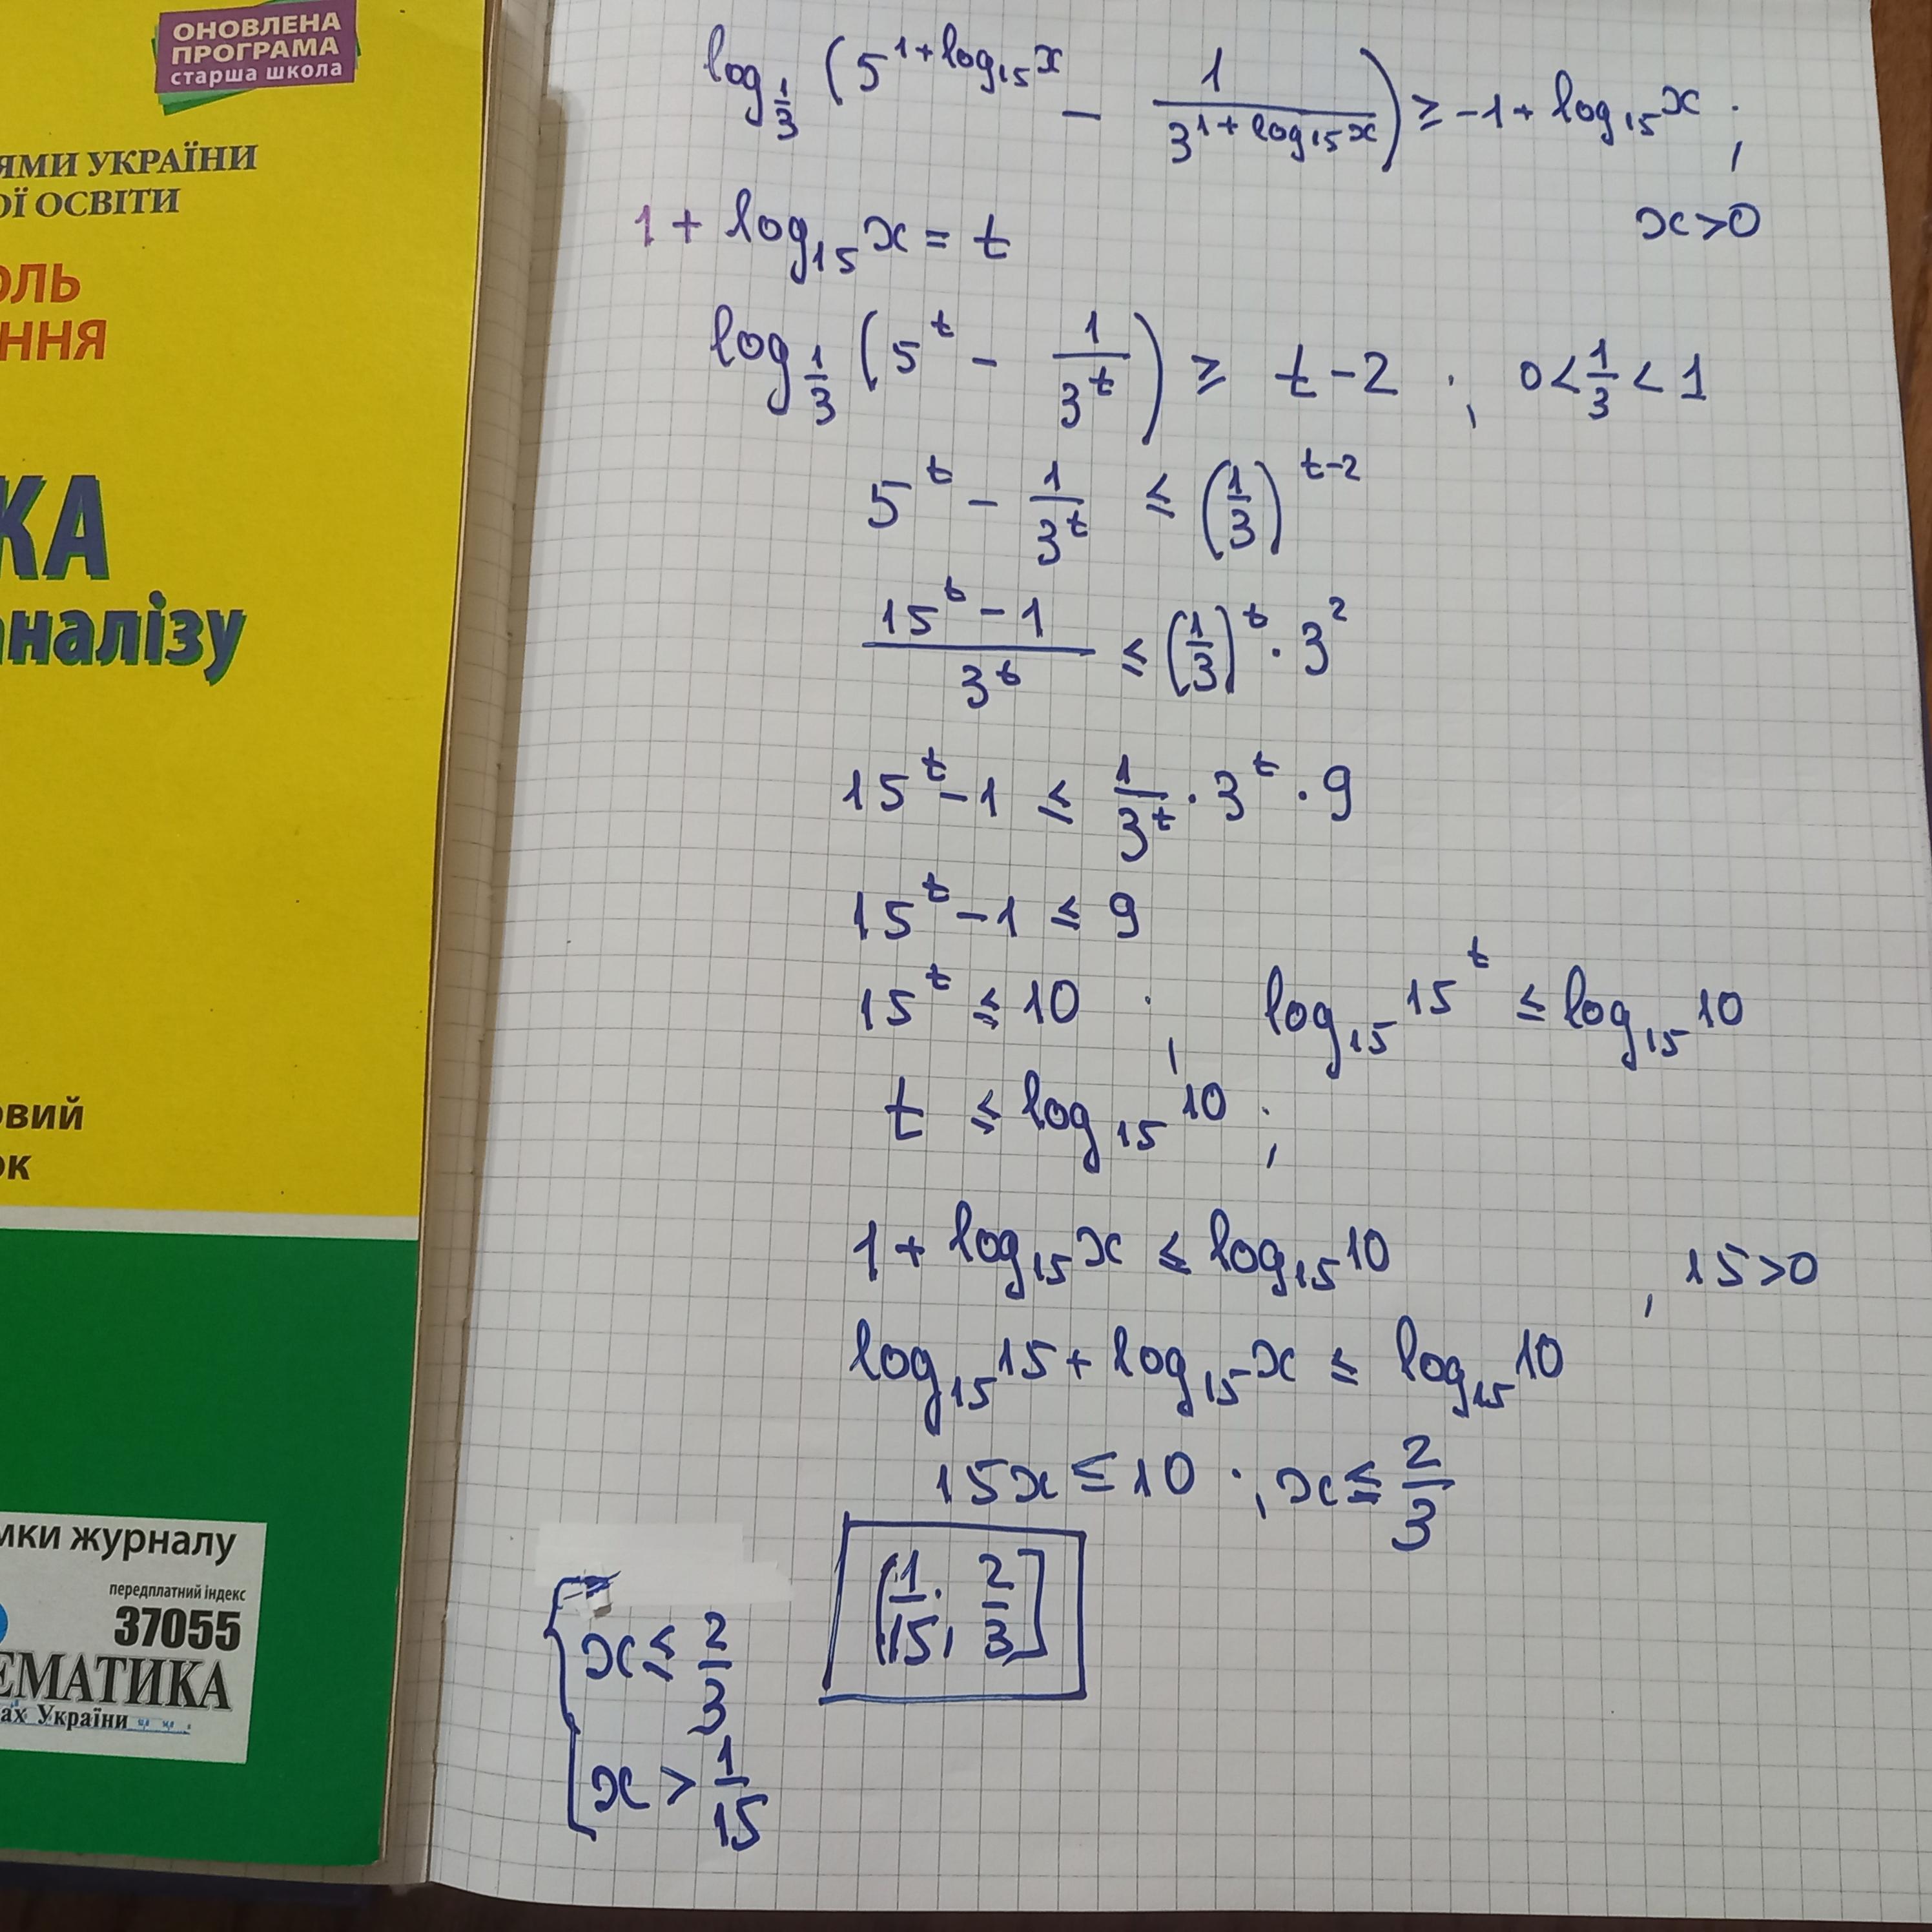 ОНОВЛЕНА
ПРОГРАМА
старша школа
ЯМИ УКРАЇНИ
ОЇ ОСВІТИ
ОЛЬ
ННЯ
КА
аналізу
овий
ок
мки журналу
передплатний індекс
37055
ЕМАТИКА
ах України
log_{1/3} (5^{1+log_{15}x} - 1/3^{1+log_{15}x}) ≥ -1 + log_{15}x ;
x>0
1 + log_{15}x = t
log_{1/3} (5^t - 1/3^t) ≥ t-2 ; 0<1/3<1
5^t - 1/3^t ≤ (1/3)^{t-2}
(15^t - 1)/3^t ≤ (1/3)^t · 3^2
15^t - 1 ≤ 1/3^t · 3^t · 9
15^t - 1 ≤ 9
15^t ≤ 10 ; log_{15}15^t ≤ log_{15}10
t ≤ log_{15}10 ;
1 + log_{15}x ≤ log_{15}10 , 15>0
log_{15}15 + log_{15}x ≤ log_{15}10
15x ≤ 10 ; x ≤ 2/3
{ x ≤ 2/3
x > 1/15
(1/15; 2/3]